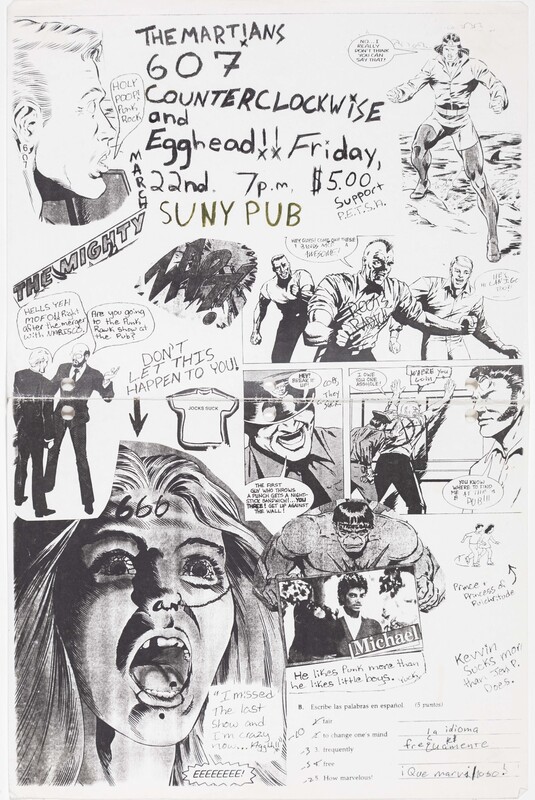 THE MARTIANS
607
COUNTERCLOCKWISE
and
Egghead!! Friday,
MARCH
22nd. 7p.m. $5.00
Support
P.E.T.S.A.
SUNY PUB
HOLY
POOP!
Punk
Rock
607
NO... I
REALLY
DON'T THINK
YOU CAN
SAY THAT!
THE MIGHTY
HELLS YEAH
MOFO! Right
after the merger
with NABISCO.
Are you going
to the Punk
Rawk show at
the Pub?
DON'T
LET THIS
HAPPEN TO YOU!
JOCKS SUCK
HEY!
BREAK IT
UP!
COPS
They
SUCK
THE FIRST
GUY WHO THROWS
A PUNCH GETS A NIGHT-
STICK SANDWICH!... YOU
THREE! GET UP AGAINST
THE WALL!
I OWE
YOU ONE
ASSHOLE!
WHERE YOU
GOIN
YOU KNOW
WHERE TO FIND
ME
666
Michael
He likes Punk more than
he likes little boys.
Prince +
Princess of
Kevvin
Sucks more
than
Does.
"I missed
the last
show and
I'm crazy
now...
EEEEEEEE!
B. Escribe las palabras en español (5 puntos)
-10
1. fair
2. to change one's mind
3. frequently
4. free
5. How marvelous!
la idioma
frequamente
¡Que marvilloso!